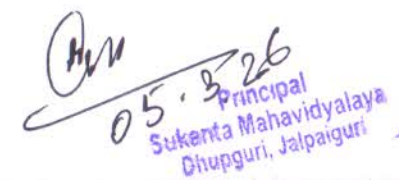 05.3.26
Principal
Sukanta Mahavidyalaya
Dhupguri, Jalpaiguri